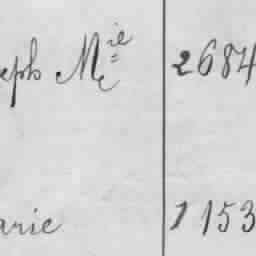 eph Mie 2684
arie 1153